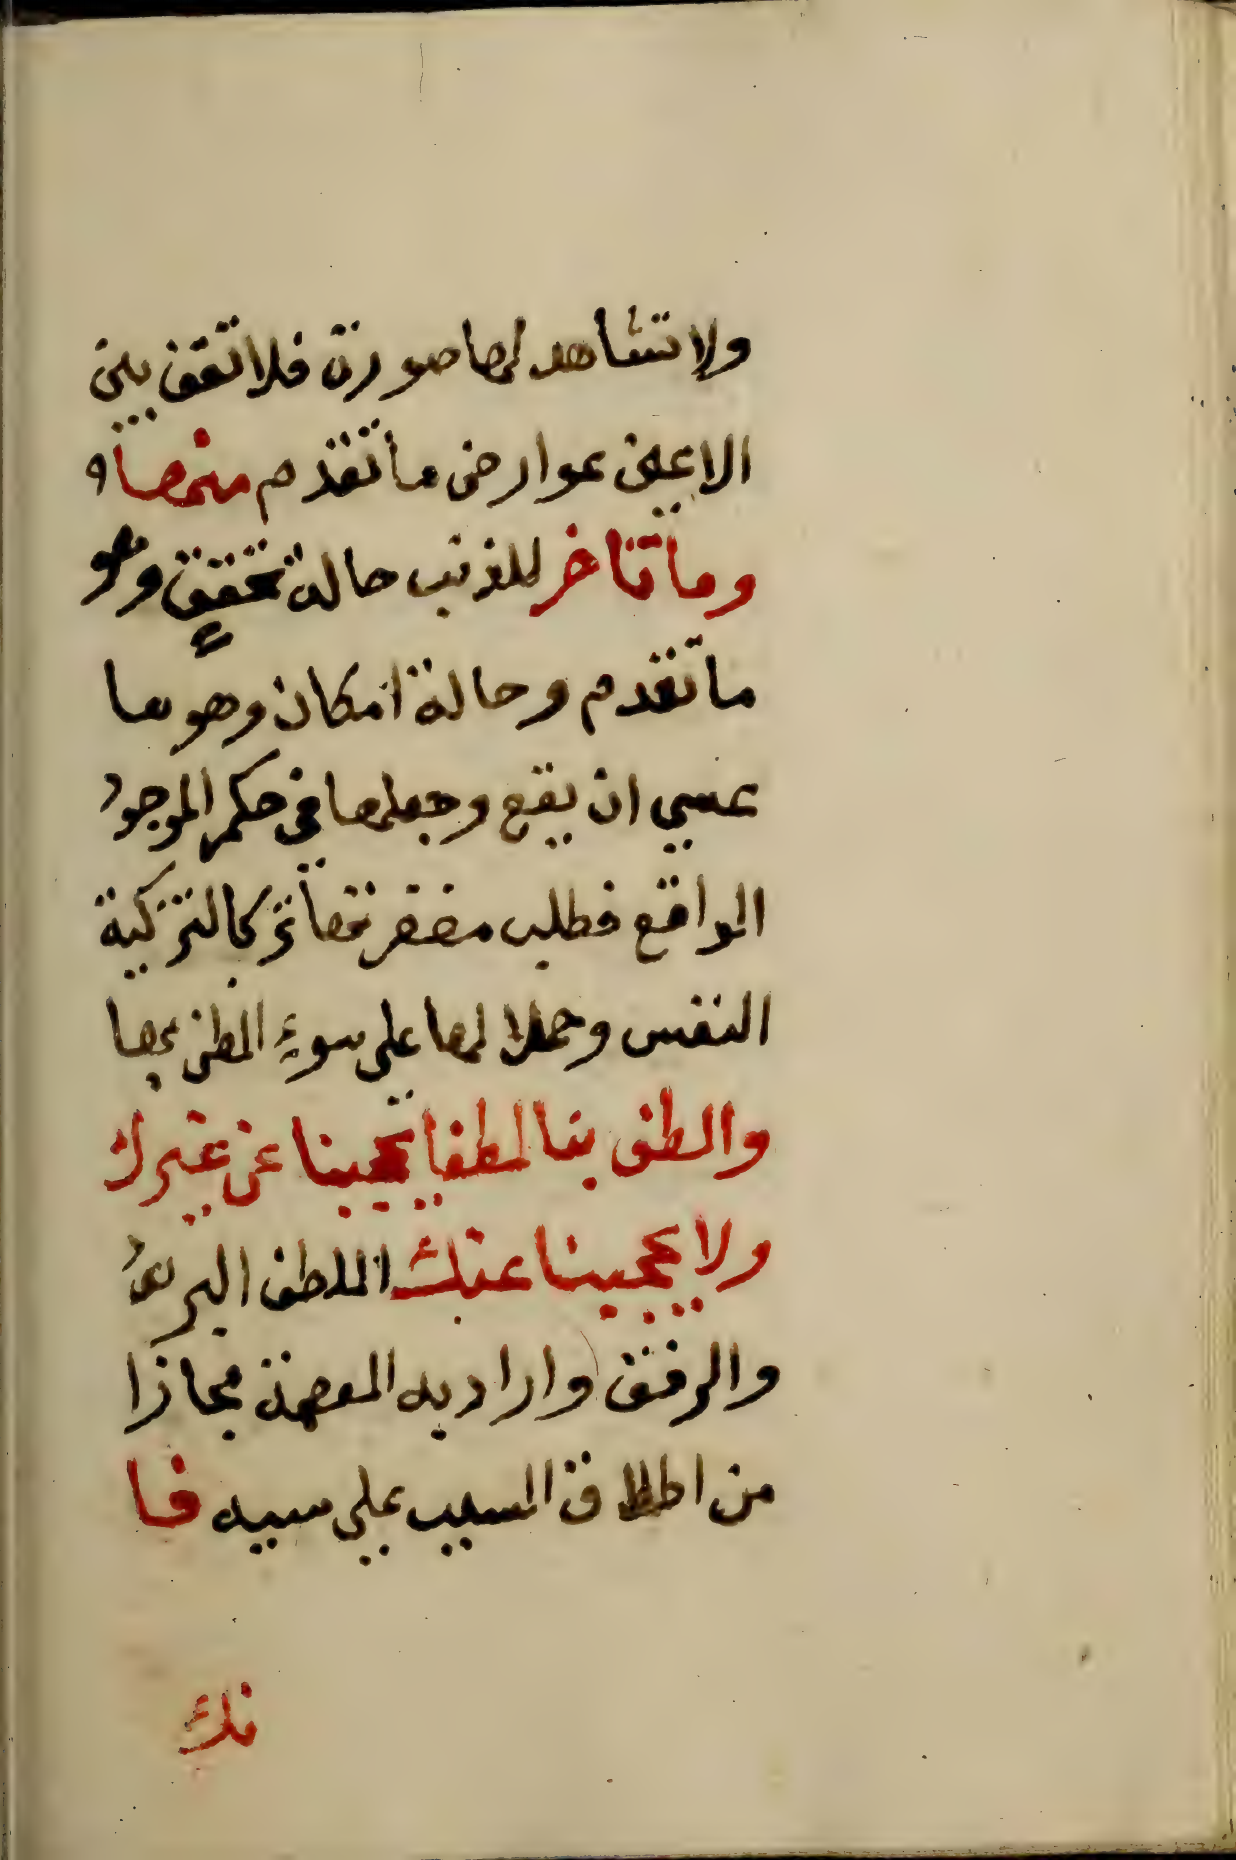 ولا تشاهد لها صورة فلا تقف بين
الاعلى عوارض ما تقدم منها و
وما تاخر للذنب حالة تحقق وهو
ما تقدم وحالة امكان وهو ما
عسي ان يقع وجعلها في حكم الموجود
الواقع فطلب تزكية
النفس وحملا لها على سوء الظن بها
والطف بنا لطفا يحجبنا عن غيرك
ولا يحجبنا عنك اللطف البر
والرفق واراد به العصمة مجازا
من اطلاق المسبب علي سببه فا
نك